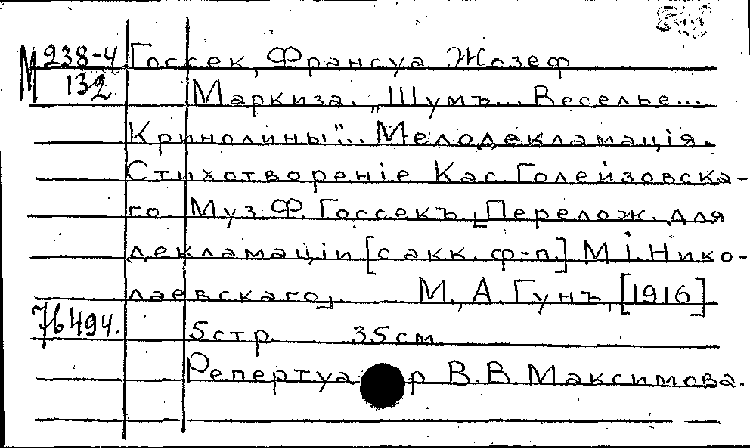 М 238-4
132
Госсек, Франсуа Жозеф
Маркиза. „Шумъ... Веселье...
Кринолины"... Мелодекламацiя.
Стихотворенiе Кас. Голейзовска-
го Муз. Ф. Госсекъ. [Перелож. для
декламацiи [с акк. ф-п.] М. I. Нико-
лаевскаго]. М., А. Гунъ, [1916]
76494.
5 стр. 35 см.
Репертуар В. В. Максимова.